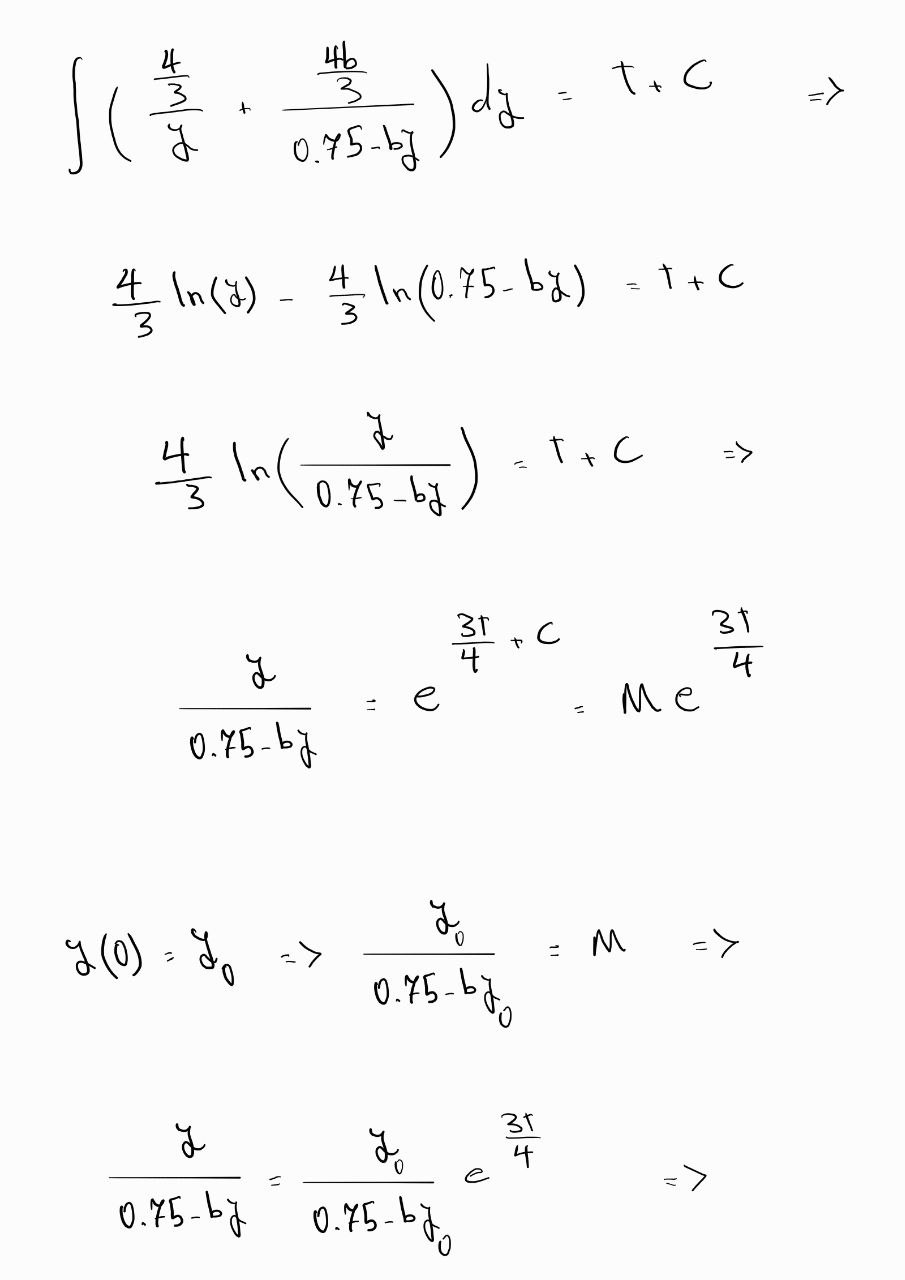 ∫ ( (4/3)/y + (4b/3)/(0.75-by) ) dy = t + C =>
4/3 ln(y) - 4/3 ln(0.75-by) = t + C
4/3 ln( y/(0.75-by) ) = t + C =>
y/(0.75-by) = e^(3t/4 + C) = M e^(3t/4)
y(0) = y₀ => y₀/(0.75-by₀) = M =>
y/(0.75-by) = y₀/(0.75-by₀) e^(3t/4) =>